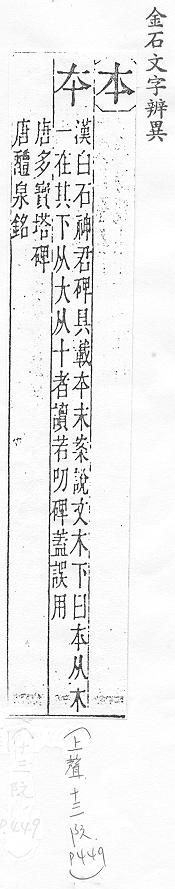 金石文字辨異
本
夲
漢白石神君碑具載本末案說文木下曰本从木
一在其下从大从十者讀若叨碑蓋誤用
唐多寶塔碑
唐醴泉銘
(上聲 十三阮 P449)
(十三阮 P449)